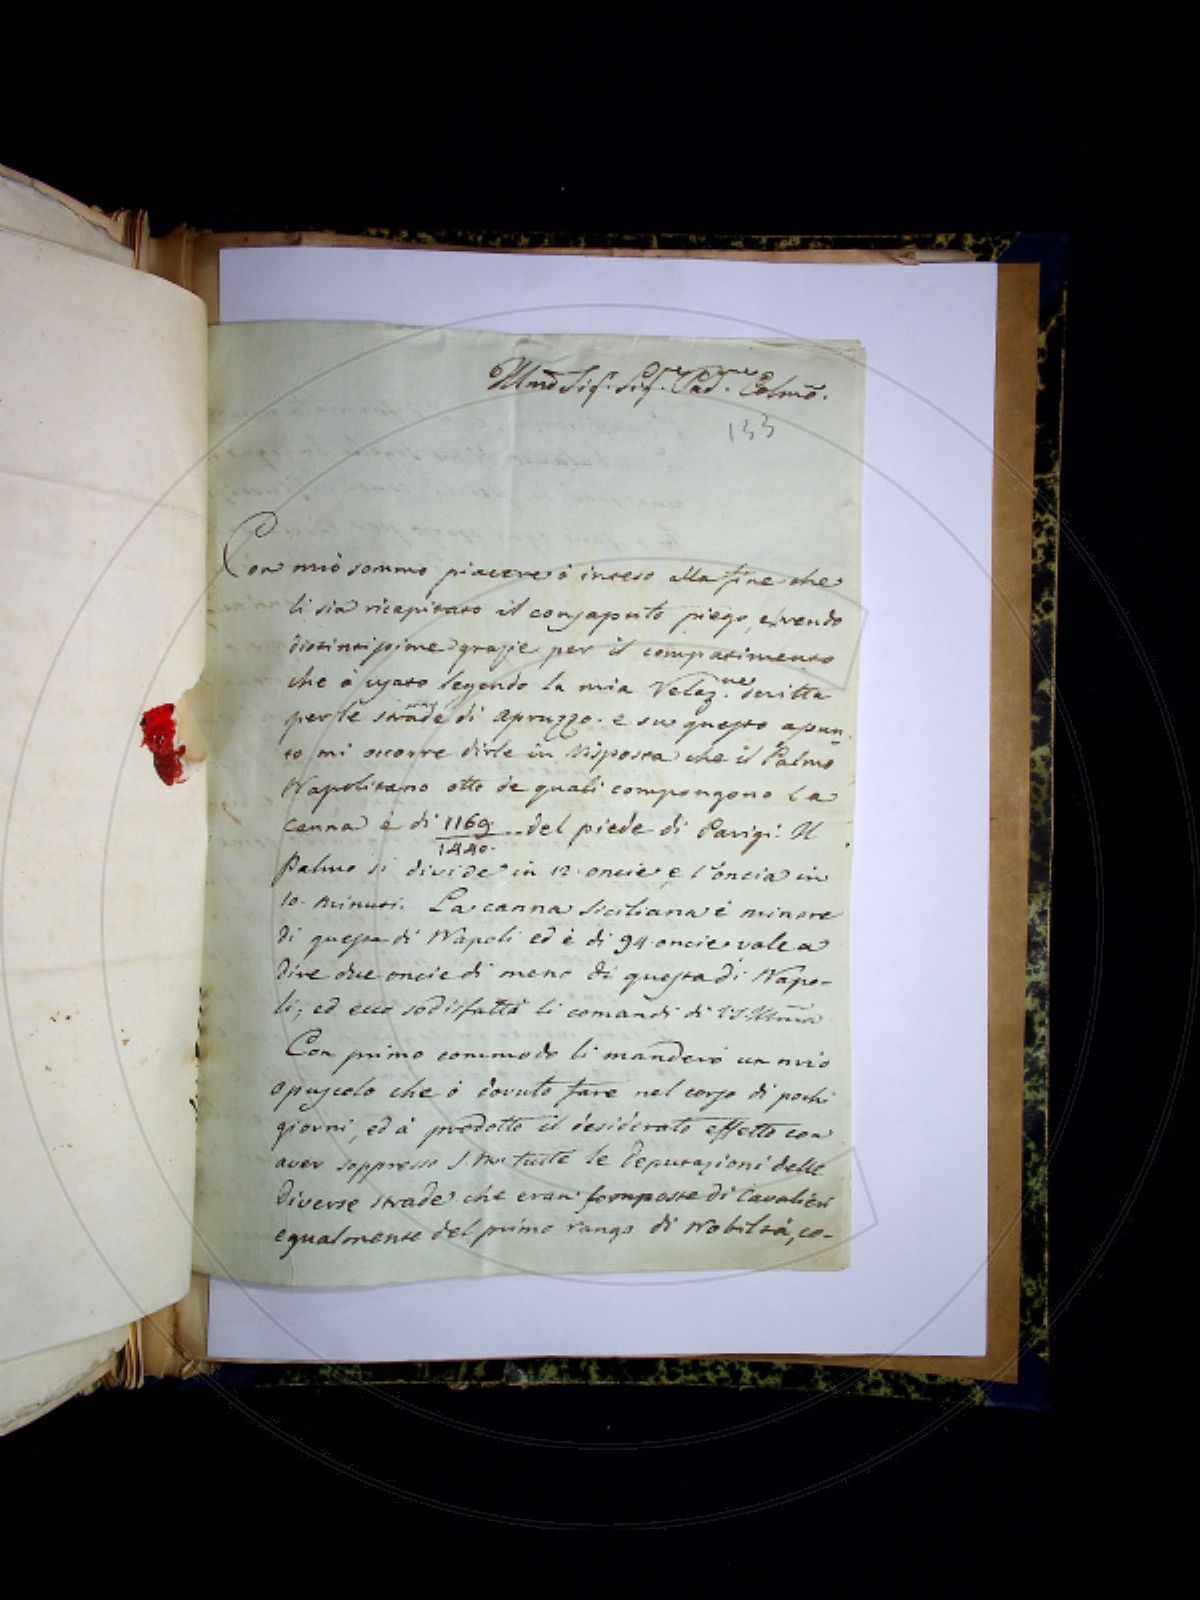 Illmo Sig.r Sig.r Pad.ne Colmo.
133
Con mio sommo piacere ò inteso alla fine che
li sia ricapitato il consaputo piego, e rendo
distintissime grazie per il compatimento
che à usato legendo la mia scritta
per le strade di Apruzzo. e su questo apun_
to mi occorre dirle in risposta che il Palmo
Napolitano otto de quali compongono la
canna è di 1169/1440. del piede di Parigi. Il
Palmo si divide in 12. oncie, e l'oncia in
10. minuti. La canna siciliana è minore
di questa di Napoli ed è di 94 oncie vale a
dire due oncie di meno di questa di Napo-
li; ed ecco sodisfatti li comandi di V.S. Illma
Con primo commodo li manderò un mio
opuscolo che ò dovuto fare nel corso di pochi
giorni, ed à prodotto il desiderato effetto con
aver soppresso S. M. tutte le deputazioni delle
diverse strade che eran composte di Cavalieri
egualmente del primo rango di Nobiltà, co-